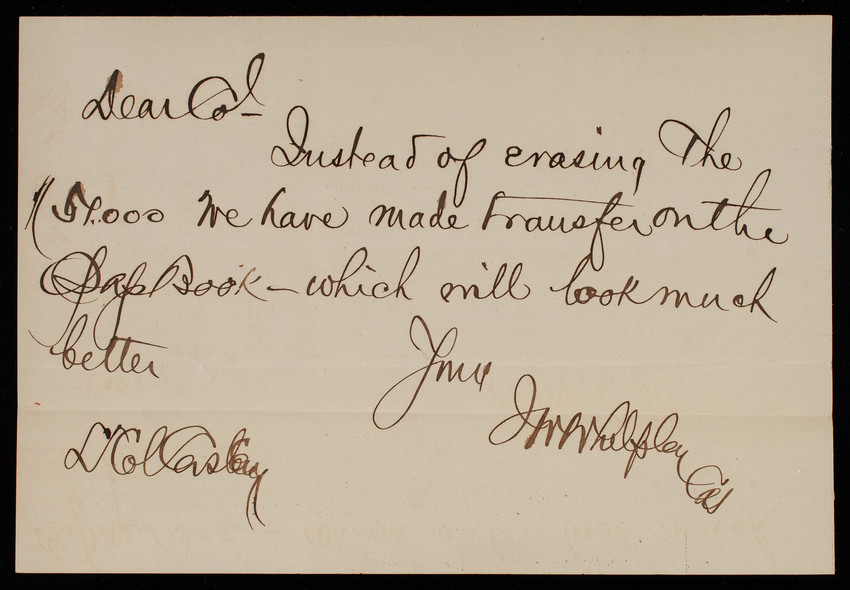 Dear Col
Instead of erasing The
$51.000 We have made transfer on the
Pass Book - which will look much
better
Yours
J W Whelpley
Cas
Lt Col Casey